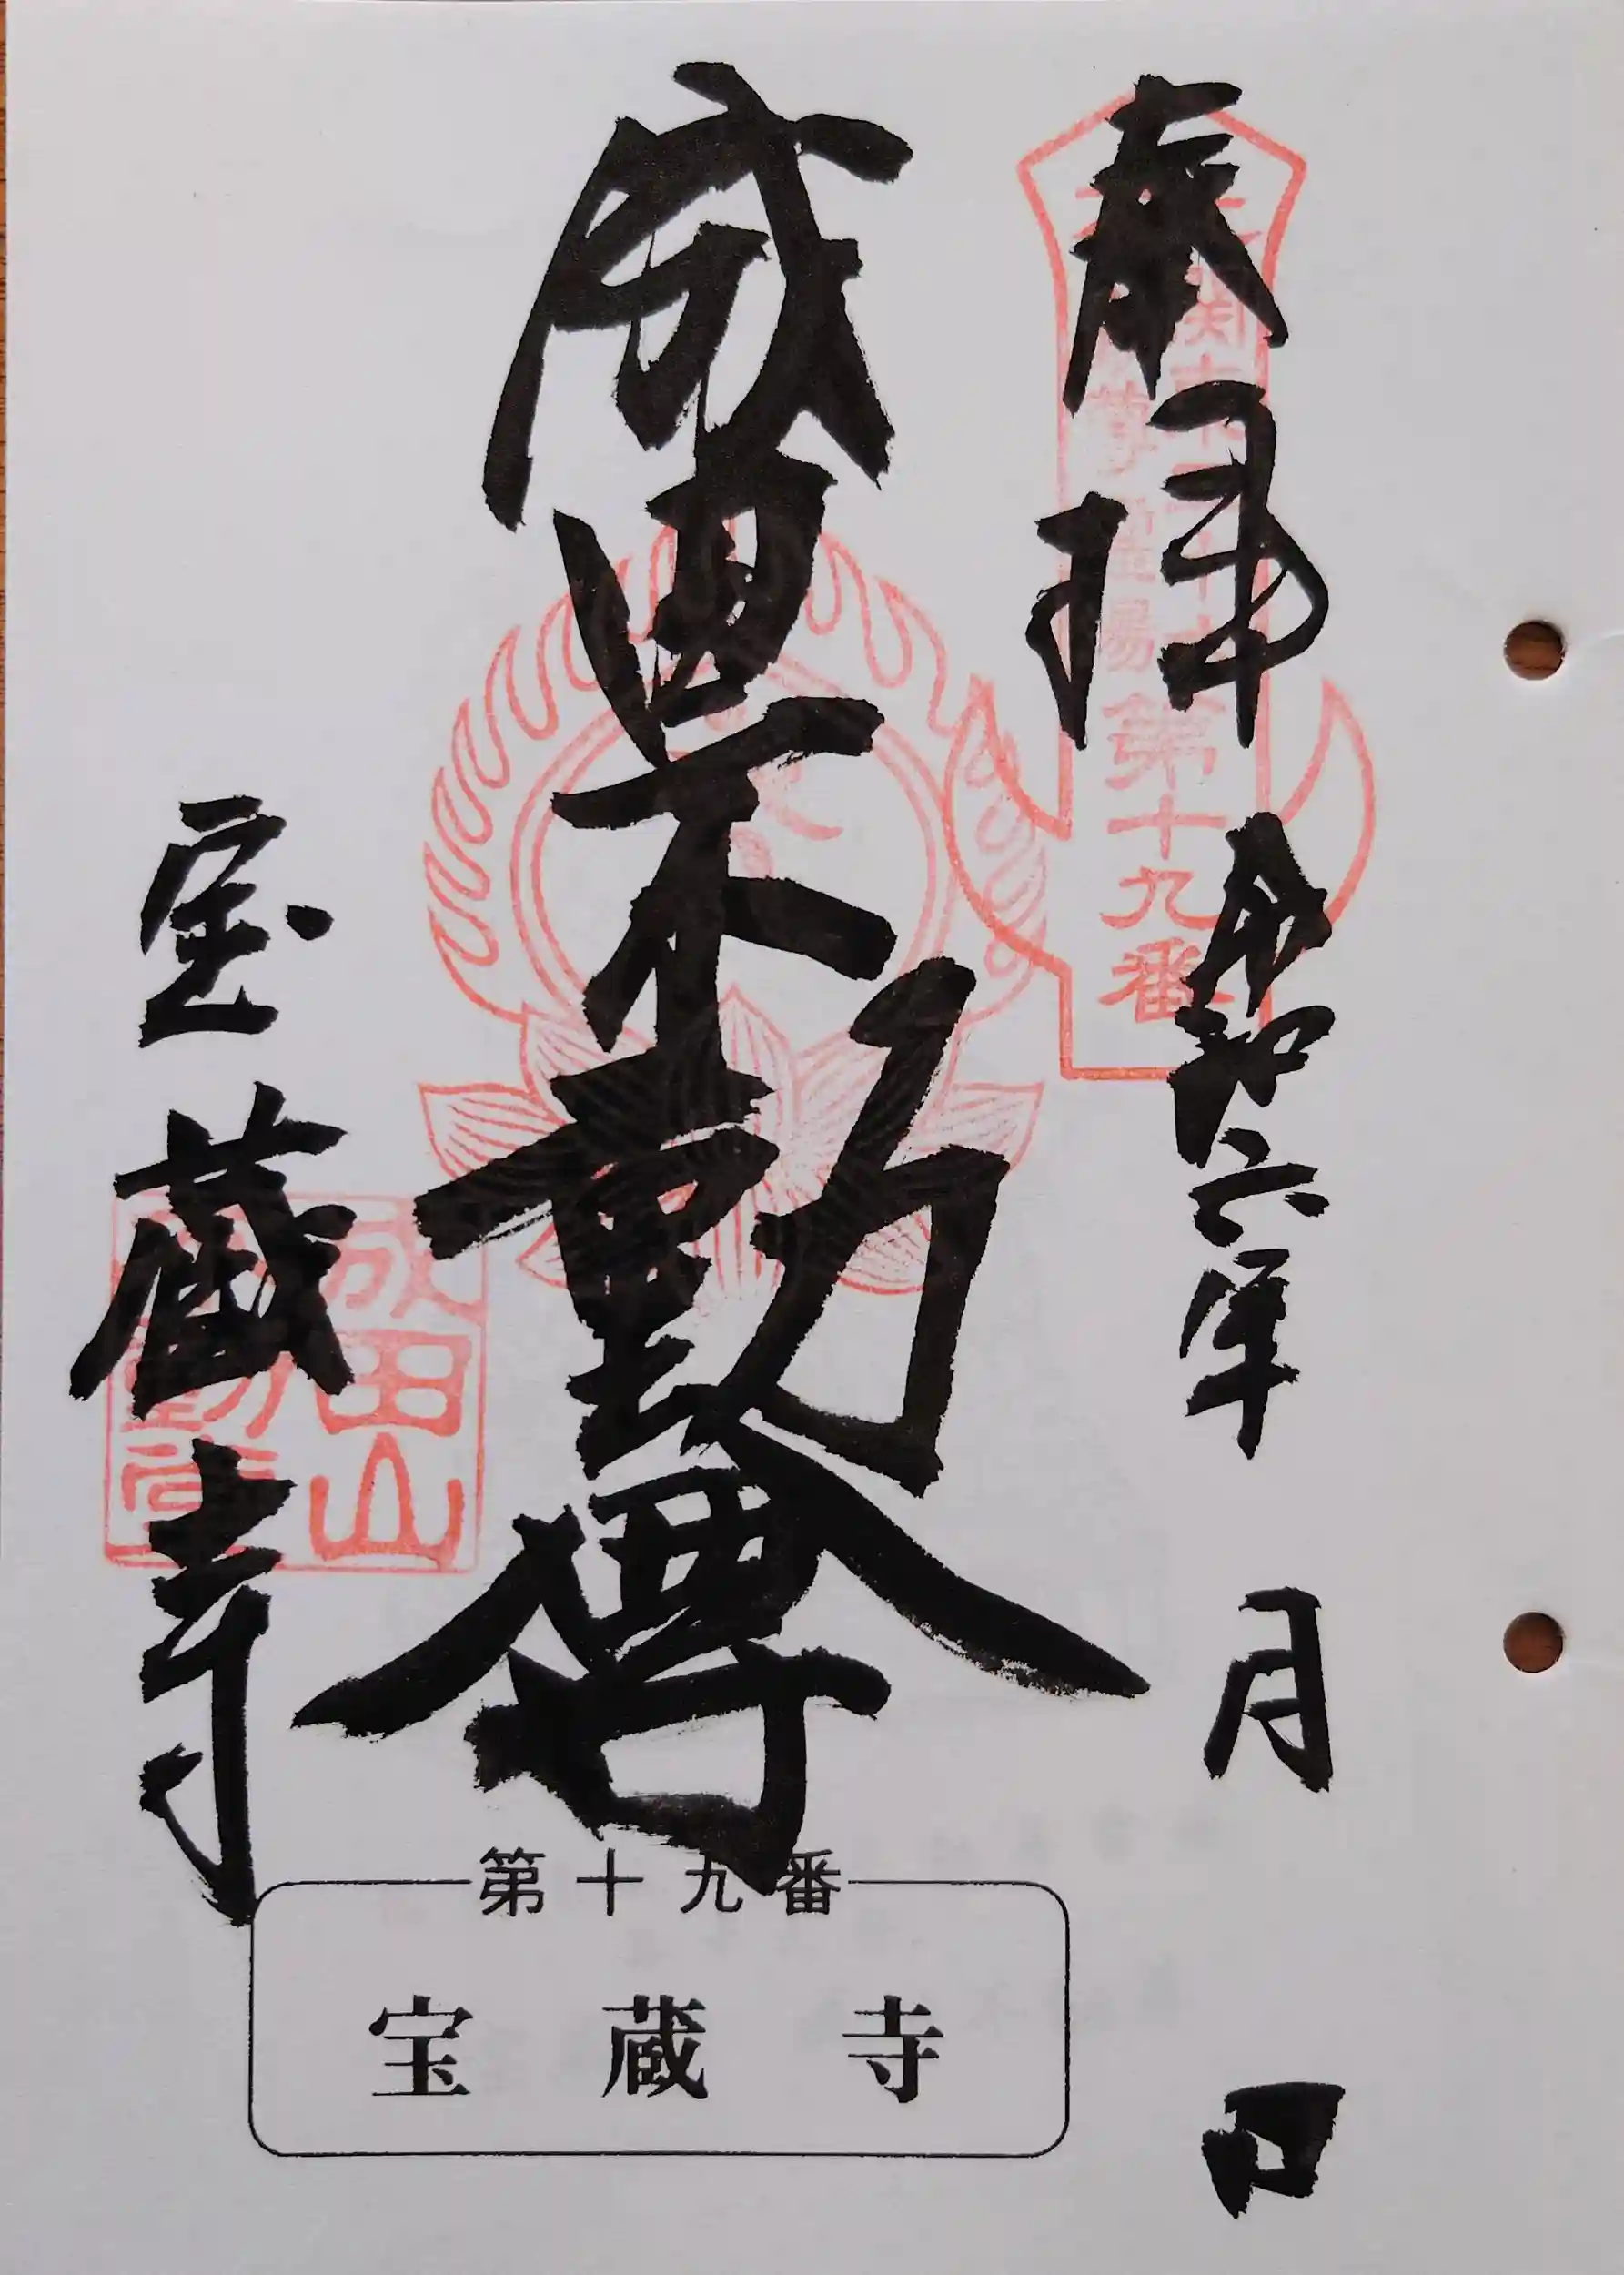 奉拝
令和六年 月 日
第十九番
成田不動尊
成田山
宝蔵寺
第十九番
宝蔵寺